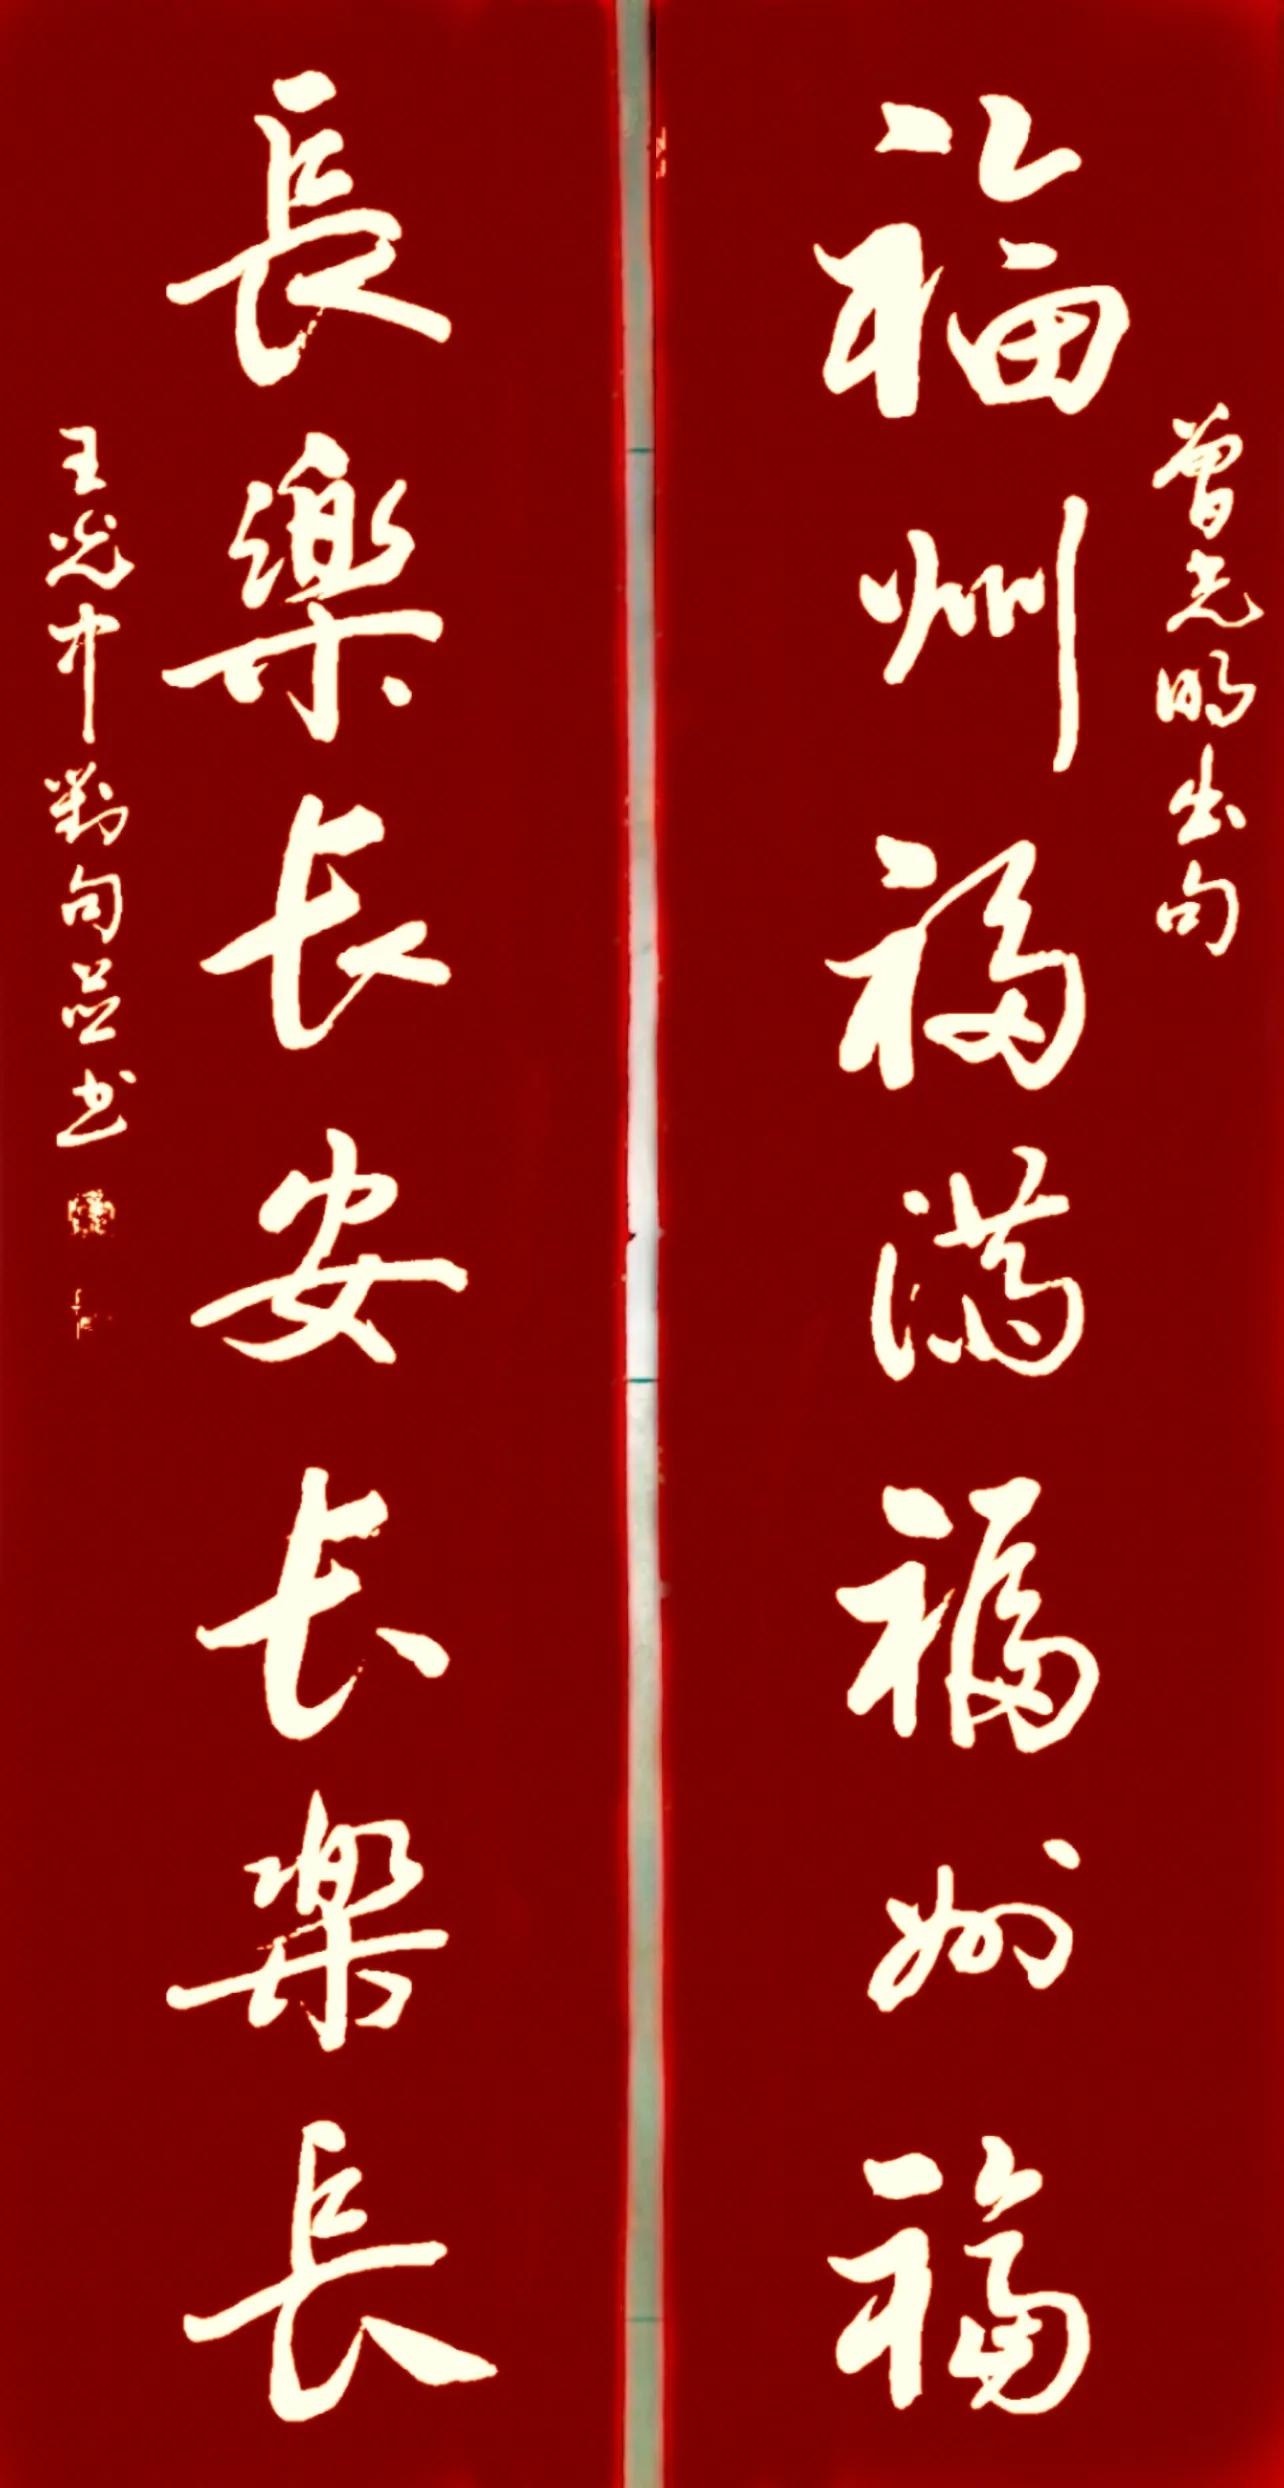 曾光明出句
福州福满福州福
長樂长安长樂長
王光中對句並书